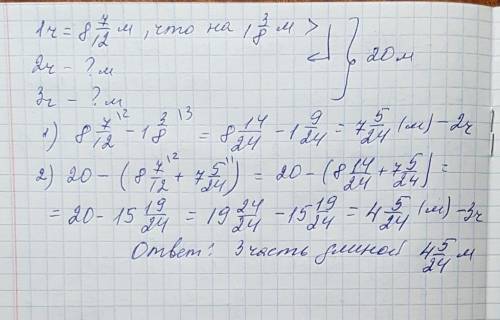 1ч = 8 7/12 м, что на 1 3/8 м >
2ч - ? м
3ч - ? м
20 м
1) 8 7/12 \2 - 1 3/8 \3 = 8 14/24 - 1 9/24 = 7 5/24 (м) - 2ч
2) 20 - (8 7/12 \2 + 7 5/24 \1) = 20 - (8 14/24 + 7 5/24) =
= 20 - 15 19/24 = 19 24/24 - 15 19/24 = 4 5/24 (м) - 3ч
Ответ: 3 часть длиной 4 5/24 м